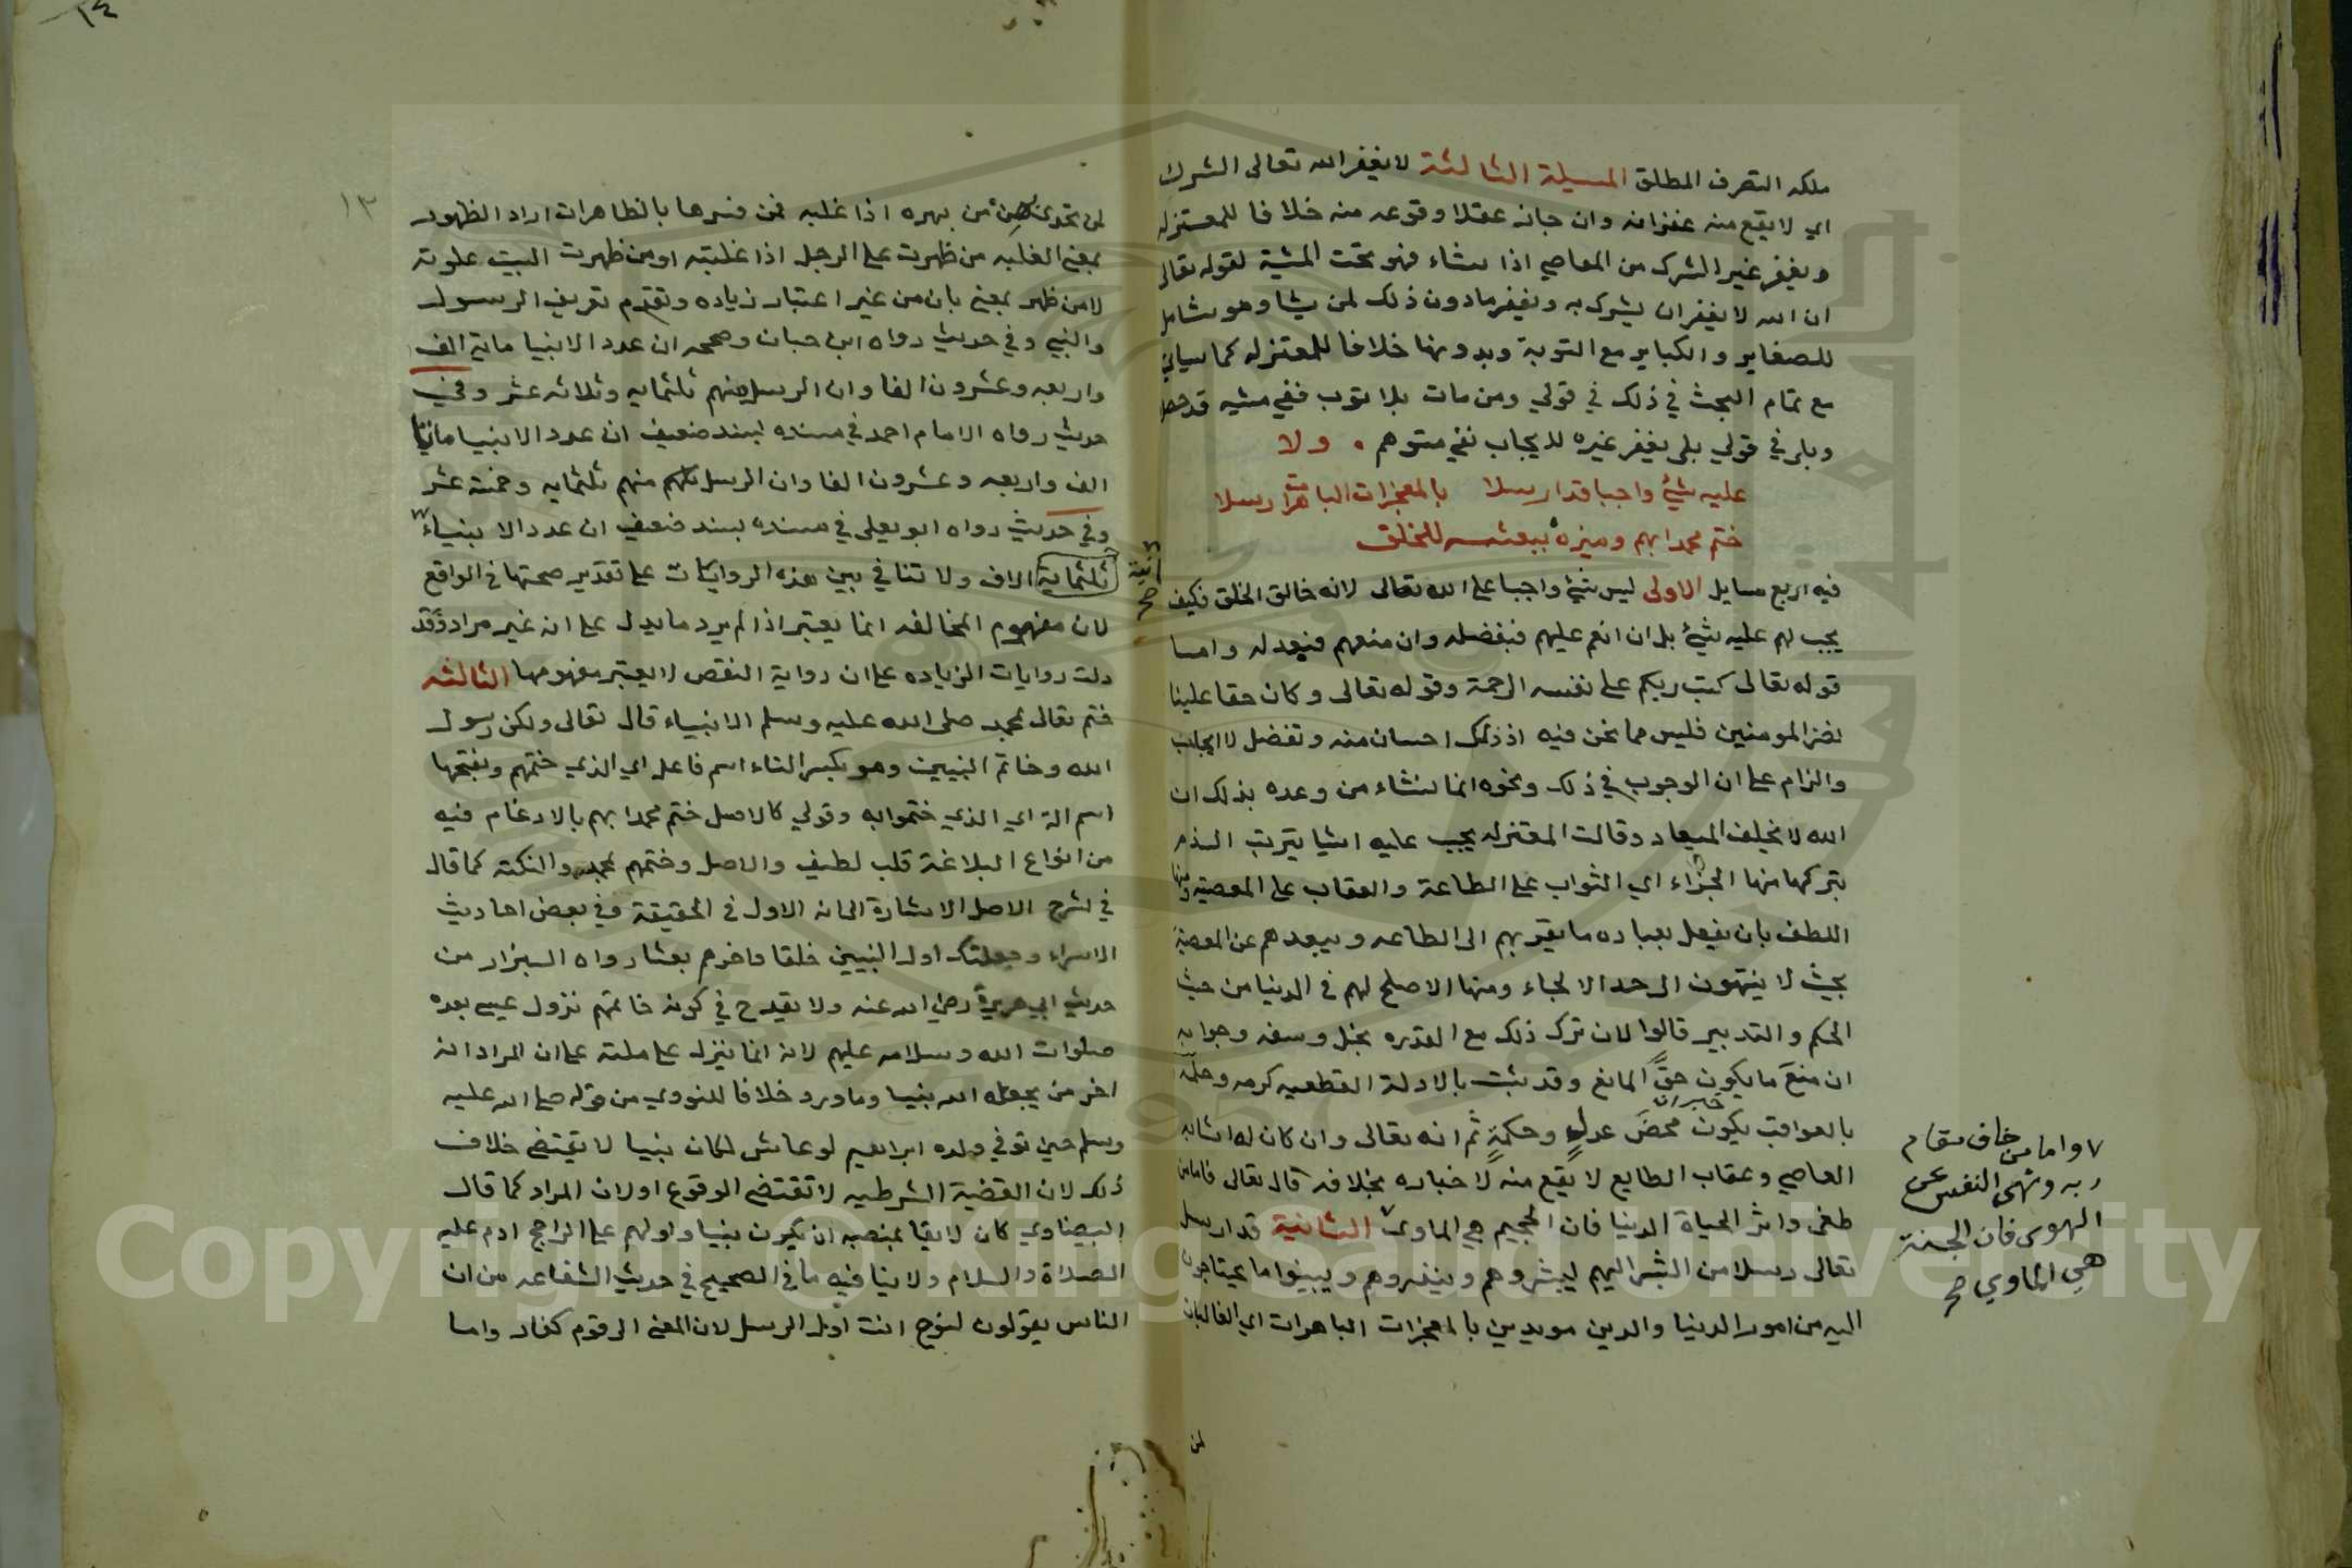 ملكه التصرف المطلق المسيلة الثالثة لا يغفر الله تعالى الشرك
اي لا يقع منه غفرانه وان جاز عقلا وقوعه منه خلافا للمعتزله
ويغفر غير الشرك من المعاصي اذا شاء فهو تحت المشية لقوله تعالى
ان الله لا يغفر ان يشرك به ويغفر مادون ذلك لمن يشا وهو شامل
للصغاير والكباير مع التوبة وبدونها خلافا للمعتزله كما سياتي
مع تمام البحث في ذلك في قولي ومن مات بلا توب ففي مشيه قد حصل
وبلى في قولي بلى يغفر غيره لايجاب نفي متوهم . ولا
عليه شيء واجبا قد ارسلا بالمعجزات الباهرات رسلا
ختم محمدا بهم وميزه ببعثه للخلق
فيه اربع مسايل الاولى ليس شيء واجبا على الله تعالى لانه خالق الخلق فكيف
يجب لهم عليه شيء بل ان انعم عليهم فبفضله وان منعهم فبعدله واما
قوله تعالى كتب ربكم على نفسه الرحمة وقوله تعالى وكان حقا علينا
نصر المومنين فليس مما نحن فيه اذ ذلك احسان منه وتفضل لا ايجاب
والزام على ان الوجوب في ذلك ونحوه انما نشاء من وعده بذلك ان
الله لا يخلف الميعاد وقالت المعتزله يجب عليه اشيا يترتب الذم
بتركها منها الجزاء اي الثواب على الطاعة والعقاب على المعصية ومنها
اللطف بان يفعل بعباده ما يقربهم الى الطاعه ويبعدهم عن المعصية
بحيث لا ينتهون الى حد الالجاء ومنها الاصلح لهم في الدنيا من حيث
الحكم والتدبير قالوا لان ترك ذلك مع القدره بخل وسفه وجوابه
ان منع ما يكون حق المانع وقد ثبت بالادلة القطعيه كرمه وحكمه
بالعواقب يكون محض عدل وحكمة ثم انه تعالى وان كان له اثابه
العاصي وعقاب الطايع لا يقع منه لاخباره بخلافه قال تعالى فاما من
طغى واثر الحياة الدنيا فان الجحيم هي الماوى الثانية قد ارسل
تعالى رسلا من البشر اليهم ليبشروهم وينذروهم ويبينوا ما يحتاجون
اليه من امور الدنيا والدين مويدين بالمعجزات الباهرات اي الغالبات
واما من خاف مقام
ربه ونهى النفس عن
الهوى فان الجنة
هي الماوي صح
لمن
١٤
١٣
لمن تحدى بهن من بهره اذا غلبه فمن فسرها بالظاهرات اراد الظهور
بمعنى الغلبه من ظهرت على الرجل اذا غلبته او من ظهرت البيت علوته
لا من ظهر بمعنى بان من غير اعتبار زياده وتقدم تعريف الرسول
والنبي وفي حديث رواه ابن حبان وصححه ان عدد الانبيا ماية الف
واربعه وعشرون الفا وان الرسل منهم ثلثمايه وثلاثه عشر وفي
حديث رواه الامام احمد في مسنده بسند ضعيف ان عدد الانبيا ماية
الف واربعه وعشرون الفا وان الرسل منهم ثلثمايه وخمسة عشر
وفي حديث رواه ابو يعلى في مسنده بسند ضعيف ان عدد الانبياء
ثلثماية الاف ولا تنافي بين هذه الروايات على تقدير صحتها في الواقع
لان مفهوم المخالفه انما يعتبر اذا لم يرد ما يدل على انه غير مراد وقد
دلت روايات الزياده على ان رواية النقص لا يعتبر مفهومها الثالثه
ختم تعالى بمحمد صلى الله عليه وسلم الانبياء قال تعالى ولكن رسول
الله وخاتم النبيين وهو بكسر التاء اسم فاعل اي الذي ختمهم وبفتحها
اسم الة اي الذي ختموا به وقولي كالاصل ختم محمدا بهم بالادغام فيه
من انواع البلاغة قلب لطيف والاصل وختمهم بمحمد والنكتة كما قال
في شرح الاصل الاشارة الى انه الاول في الحقيقة وفي بعض احاديث
الاسراء وجعلتك اول النبيين خلقا واخرهم بعثا رواه البزار من
حديث ابي هريرة رضي الله عنه ولا يقدح في كونه خاتمهم نزول عيسى بعده
صلوات الله وسلامه عليهم لانه انما ينزل على ملته على ان المراد انه
اخر من يجعله الله نبيا وما ورد خلافا للنووي من قوله صلى الله عليه
وسلم حين توفي ولده ابراهيم لو عاش لكان نبيا لا يقتضي خلاف
ذلك لان القضية الشرطيه لا تقتضي الوقوع او لان المراد كما قال
البيضاوي كان لايقا بمنصبه ان يكون نبيا واولهم على الراجح ادم عليه
الصلاة والسلام ولا ينافيه ما في الصحيح في حديث الشفاعه من ان
الناس يقولون لنوح انت اول الرسل لان المعنى الى قوم كفار واما
Copyright © King Saud University